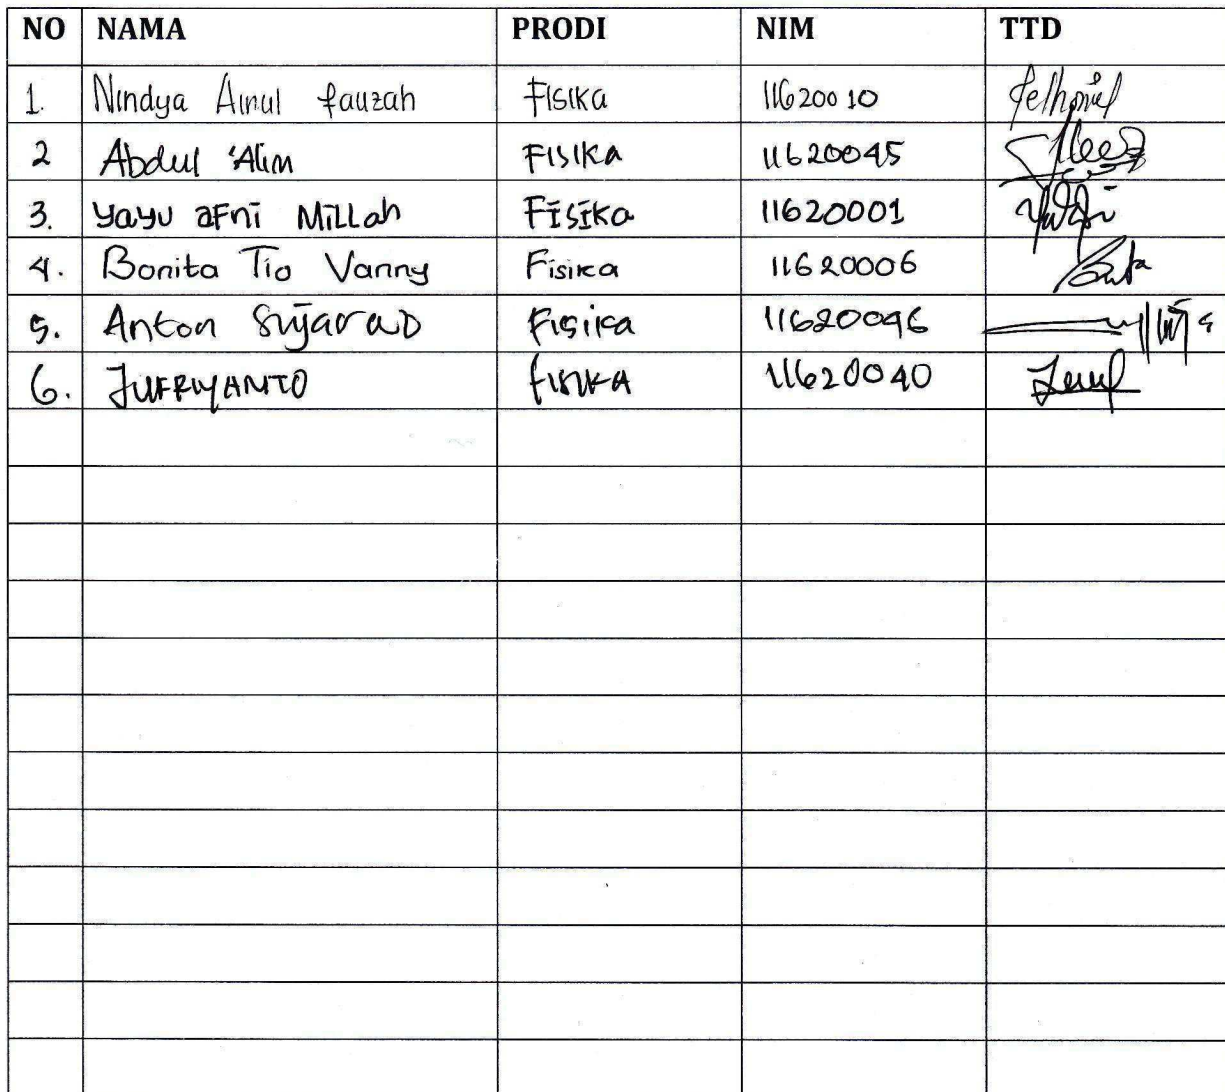 NO NAMA PRODI NIM TTD
1. Nindya Ainul fauzah FISIKA 11620010
2 Abdul 'Alim FISIKA 11620045
3. Yayu aFni MiLLah FISIKa 11620001
4. Bonita Tio Vanny Fisika 11620006
5. Anton Fisika 11620046
6. JUFRIYANTO FISIKA 11620040